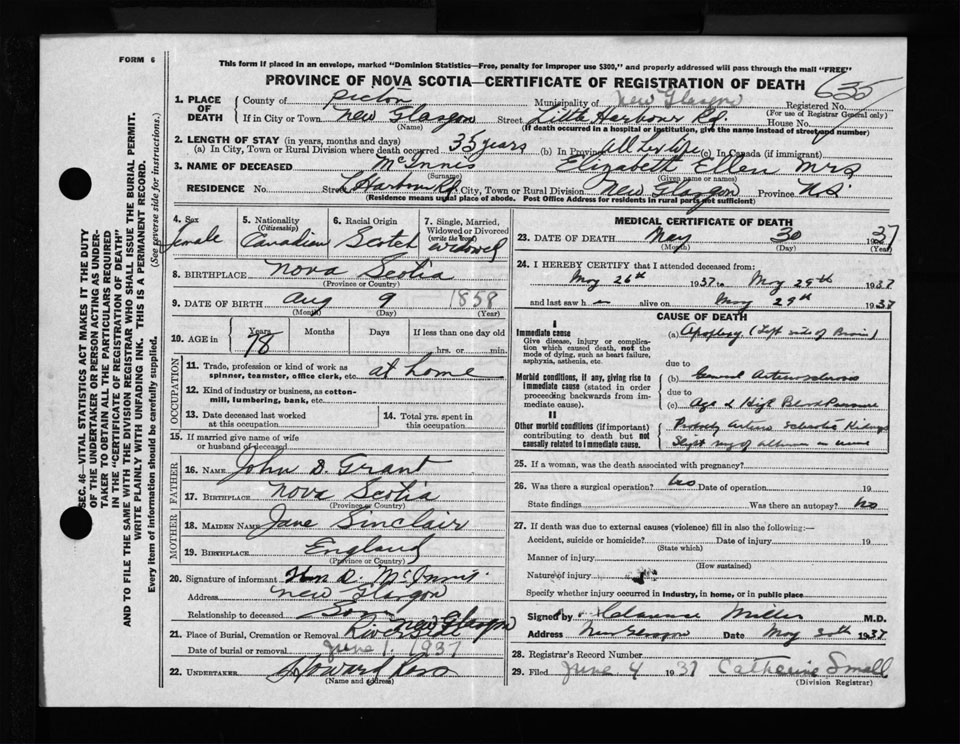 FORM 6
This form if placed in an envelope, marked "Dominion Statistics—Free, penalty for improper use $300," and properly addressed will pass through the mail "FREE"
PROVINCE OF NOVA SCOTIA—CERTIFICATE OF REGISTRATION OF DEATH
635
1. PLACE OF DEATH
County of Pictou Municipality of New Glasgow Registered No.
(For use of Registrar General only)
If in City or Town New Glasgow Street Little Harbour Rd House No.
(Name) (If death occurred in a hospital or institution, give the name instead of street and number)
2. LENGTH OF STAY (in years, months and days)
(a) In City, Town or Rural Division where death occurred 35 years (b) In Province All her life (c) In Canada (if immigrant)
3. NAME OF DECEASED McInnis Elizabeth Ellen Mrs
(Surname) (Given name or names)
RESIDENCE No. Street L Harbour Rd City, Town or Rural Division New Glasgow Province N.S.
(Residence means usual place of abode. Post Office Address for residents in rural parts not sufficient)
4. Sex
female
5. Nationality
(Citizenship)
Canadian
6. Racial Origin
Scotch
7. Single, Married, Widowed or Divorced
(write the word)
widowed
8. BIRTHPLACE Nova Scotia
(Province or Country)
9. DATE OF BIRTH Aug 9 1858
(Month) (Day) (Year)
10. AGE in
Years Months Days If less than one day old
78 hrs. or min.
OCCUPATION
11. Trade, profession or kind of work as spinner, teamster, office clerk, etc. at home
12. Kind of industry or business, as cotton-mill, lumbering, bank, etc.
13. Date deceased last worked at this occupation
14. Total yrs. spent in this occupation
15. If married give name of wife or husband of deceased
FATHER
16. NAME John D. Grant
17. BIRTHPLACE Nova Scotia
(Province or Country)
MOTHER
18. MAIDEN NAME Jane Sinclair
19. BIRTHPLACE England
(Province or Country)
20. Signature of informant D. McInnis
Address New Glasgow
Relationship to deceased Son
21. Place of Burial, Cremation or Removal New Glasgow
Date of burial or removal June 1, 1937
22. UNDERTAKER Howard Ross
(Name and address)
MEDICAL CERTIFICATE OF DEATH
23. DATE OF DEATH May 30 1937
(Month) (Day) (Year)
24. I HEREBY CERTIFY that I attended deceased from:
May 26th 1937 to May 29th 1937
and last saw h er alive on May 29th 1937
CAUSE OF DEATH
I
Immediate cause
Give disease, injury or complication which caused death, not the mode of dying, such as heart failure, asphyxia, asthenia, etc.
(a) Apoplexy (Left side of Brain)
due to
Morbid conditions, if any, giving rise to immediate cause (stated in order proceeding backwards from immediate cause).
(b) General Arteriosclerosis
due to
(c) Age & High Blood Pressure
II
Other morbid conditions (if important) contributing to death but not causally related to immediate cause.
Probably Arterio Sclerotic Kidneys
25. If a woman, was the death associated with pregnancy?
26. Was there a surgical operation? No Date of operation 19
State findings Was there an autopsy? No
27. If death was due to external causes (violence) fill in also the following:—
Accident, suicide or homicide? Date of injury 19
(State which)
Manner of injury
(How sustained)
Nature of injury
Specify whether injury occurred in industry, in home, or in public place
Signed by Clarence Miller M.D.
Address New Glasgow Date May 30th 1937
28. Registrar's Record Number
29. Filed June 4 1937 Catherine Small
(Division Registrar)
SEC. 46—VITAL STATISTICS ACT MAKES IT THE DUTY
OF THE UNDERTAKER OR PERSON ACTING AS UNDER-
TAKER TO OBTAIN ALL THE PARTICULARS REQUIRED
IN THE "CERTIFICATE OF REGISTRATION OF DEATH"
AND TO FILE THE SAME WITH THE DIVISION REGISTRAR WHO SHALL ISSUE THE BURIAL PERMIT.
WRITE PLAINLY WITH UNFADING INK. THIS IS A PERMANENT RECORD.
Every item of information should be carefully supplied. (See reverse side for instructions.)